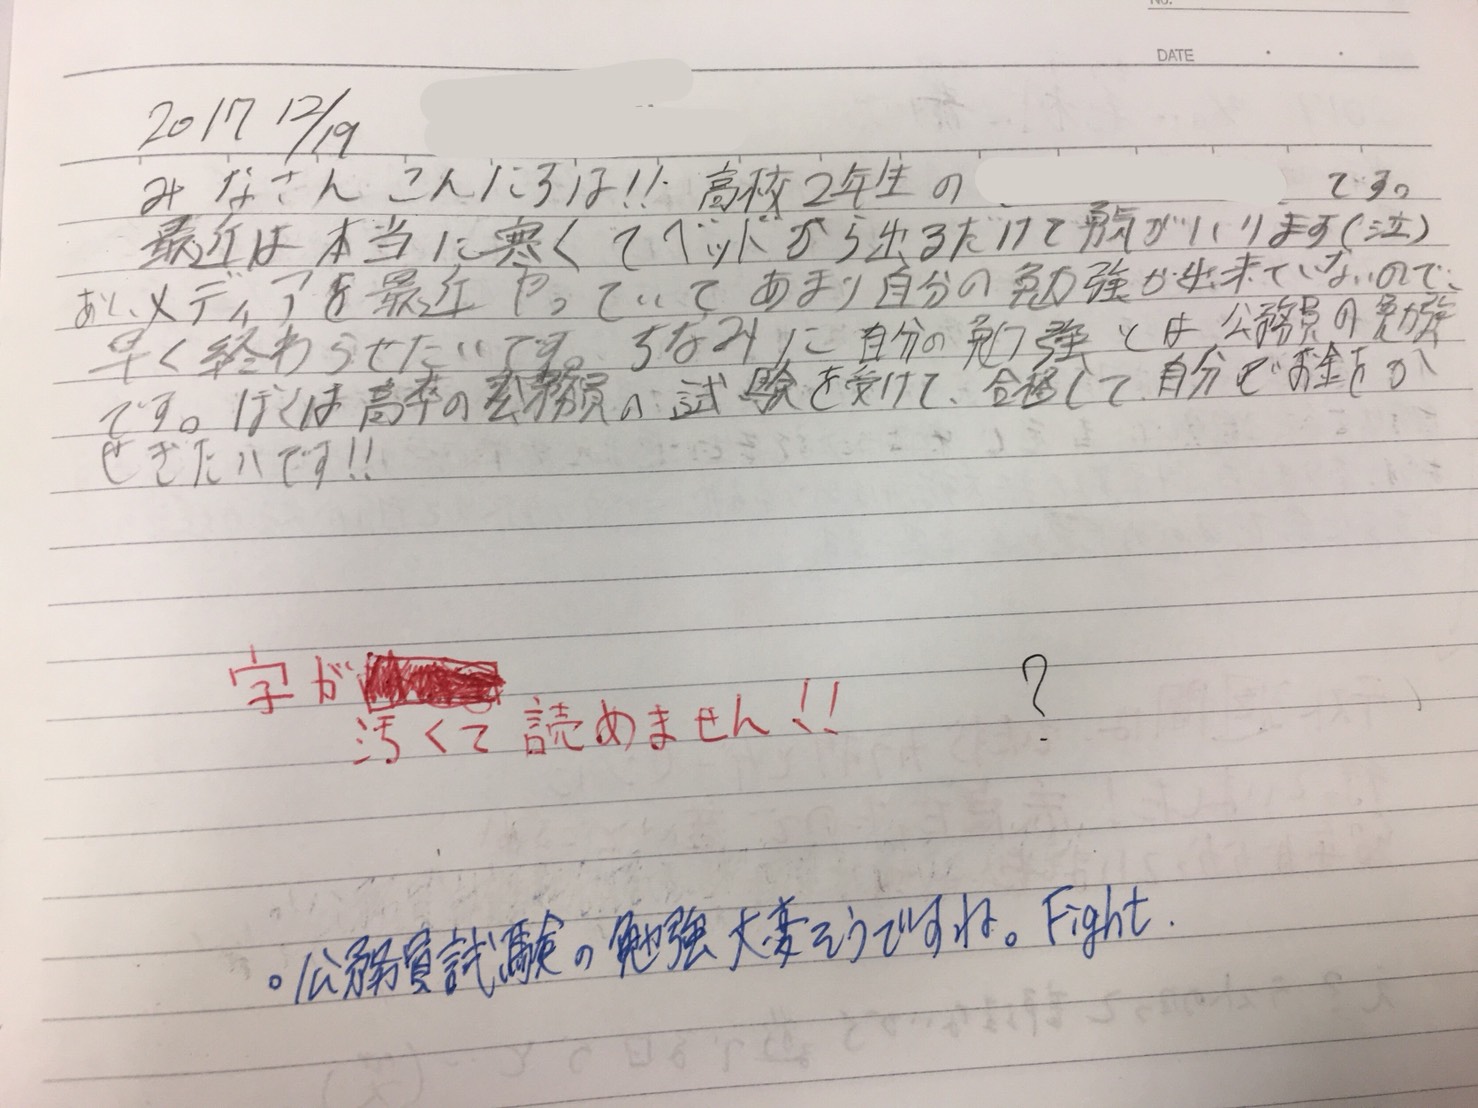 No.
DATE
2017 12/19
みなさんこんにちは!! 高校2年生の です。
最近は本当に寒くてベッドから出るだけで勇気がいります(泣)
メディアを最近やっていてあまり自分の勉強が出来ていないので、
早く終わらせたいです。ちなみに自分の勉強とは公務員の勉強
です。ぼくは高卒の公務員の試験を受けて、合格して自分でお金をか
せぎたいです!!
字が
汚くて読めません!!
?
。公務員試験の勉強大変そうですね。Fight.